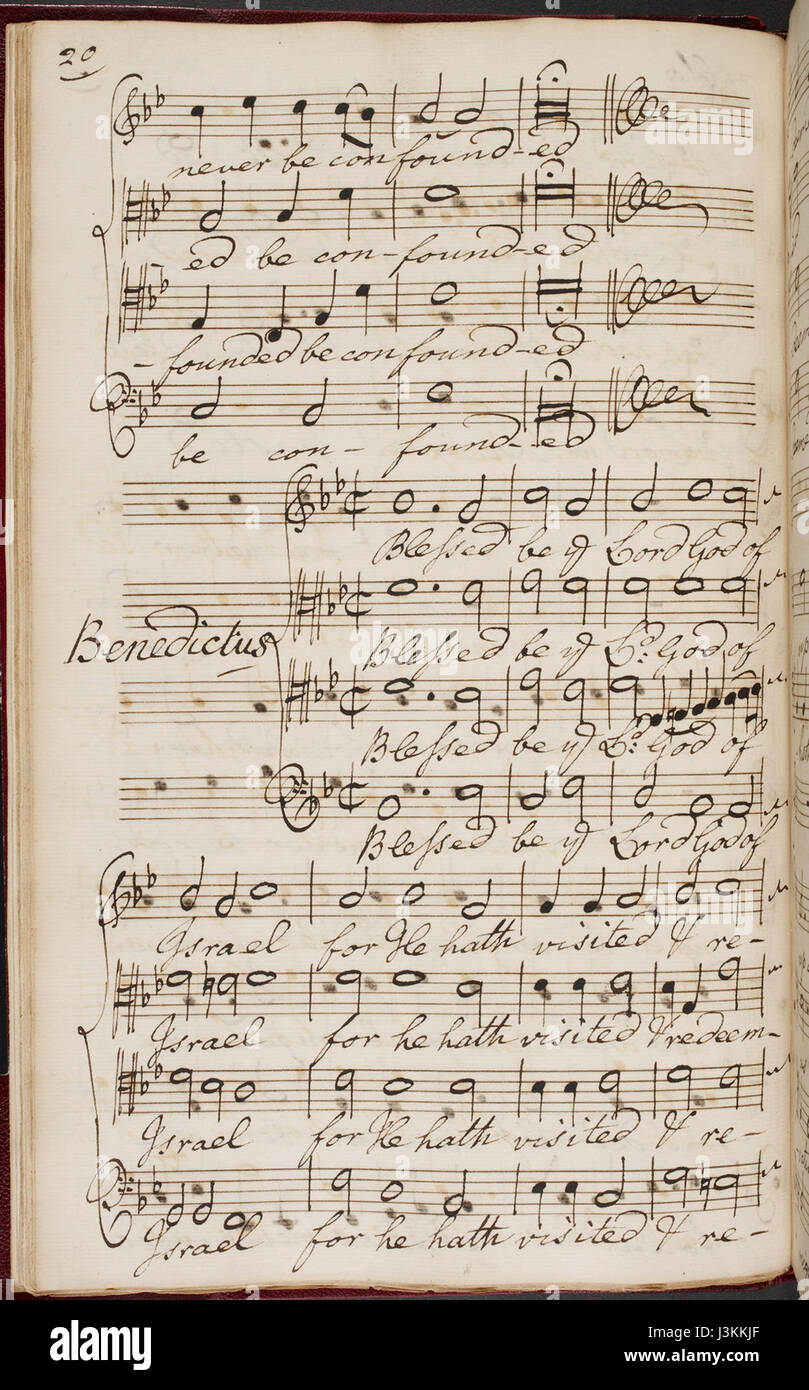 20
never be confound-ed
ed be con-found-ed
-founded be confound-ed
be con- found-ed
Blessed be yͤ Lord God of
Benedictus
Blessed be yͤ Ld: God of
Blessed be yͤ Ld: God of
Blessed be yͤ Lord God of
Israel for He hath visited & re-
Israel for he hath visited & redeem-
Israel for He hath visited & re-
Israel for he hath visited & re-
alamy
Image ID: J3KKJF
www.alamy.com